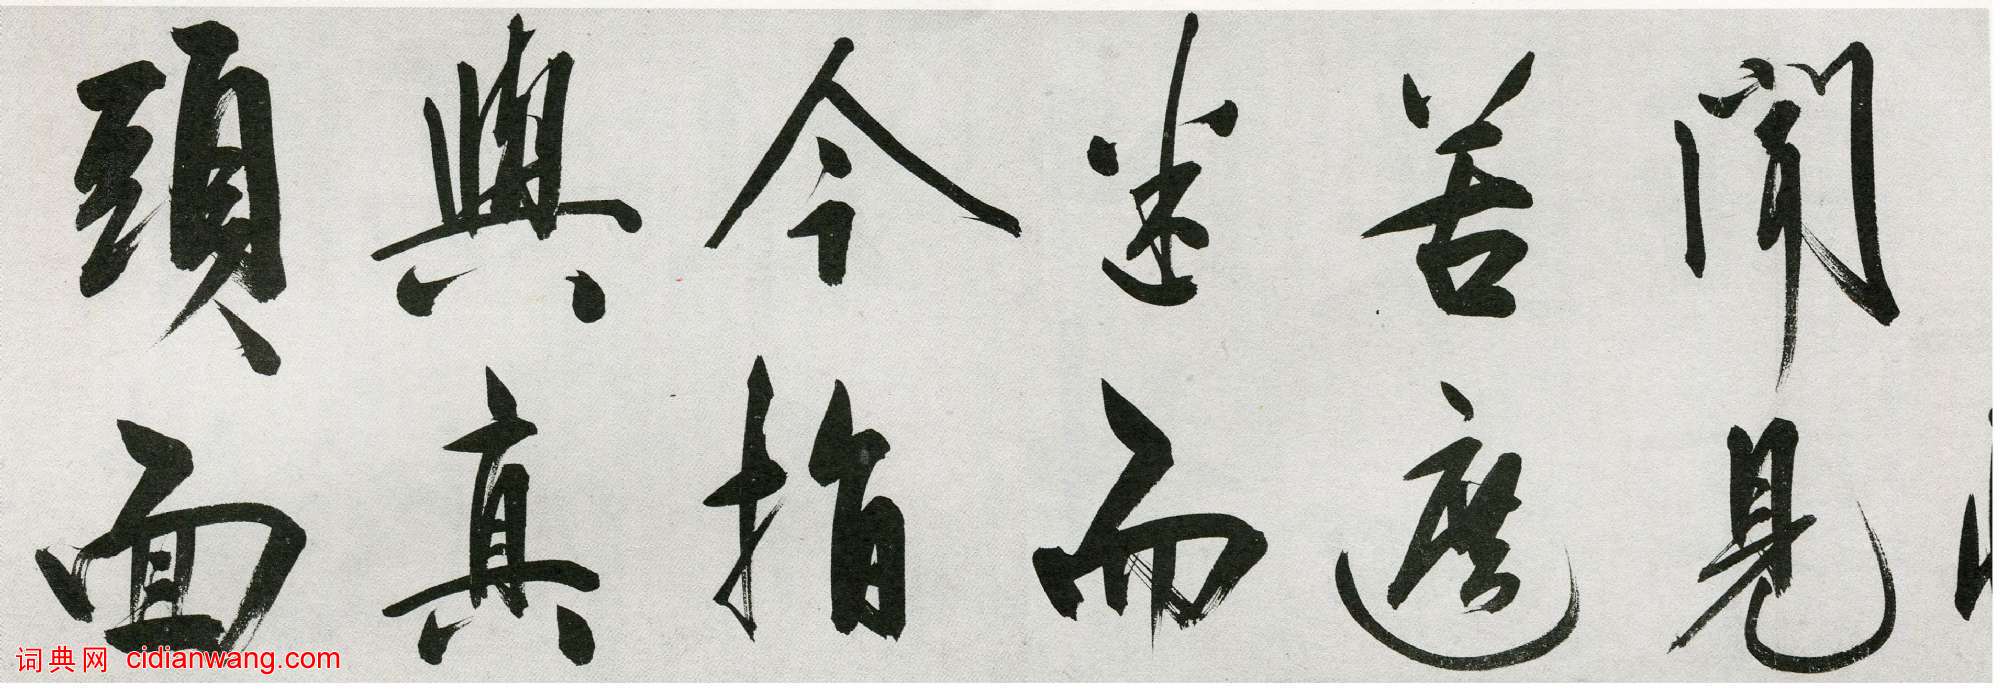 聞見
苦遮
迷而
今指
與真
頭面
词典网 cidianwang.com